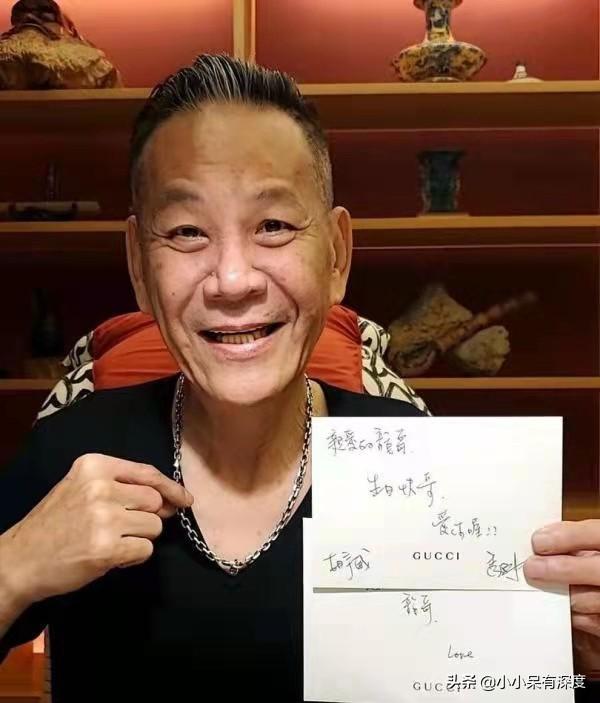 親愛的龍哥.
生日快
愛你喔!!
胡宇威
GUCCI
龍哥.
Love
GUCCI
头条 @小小呆有深度